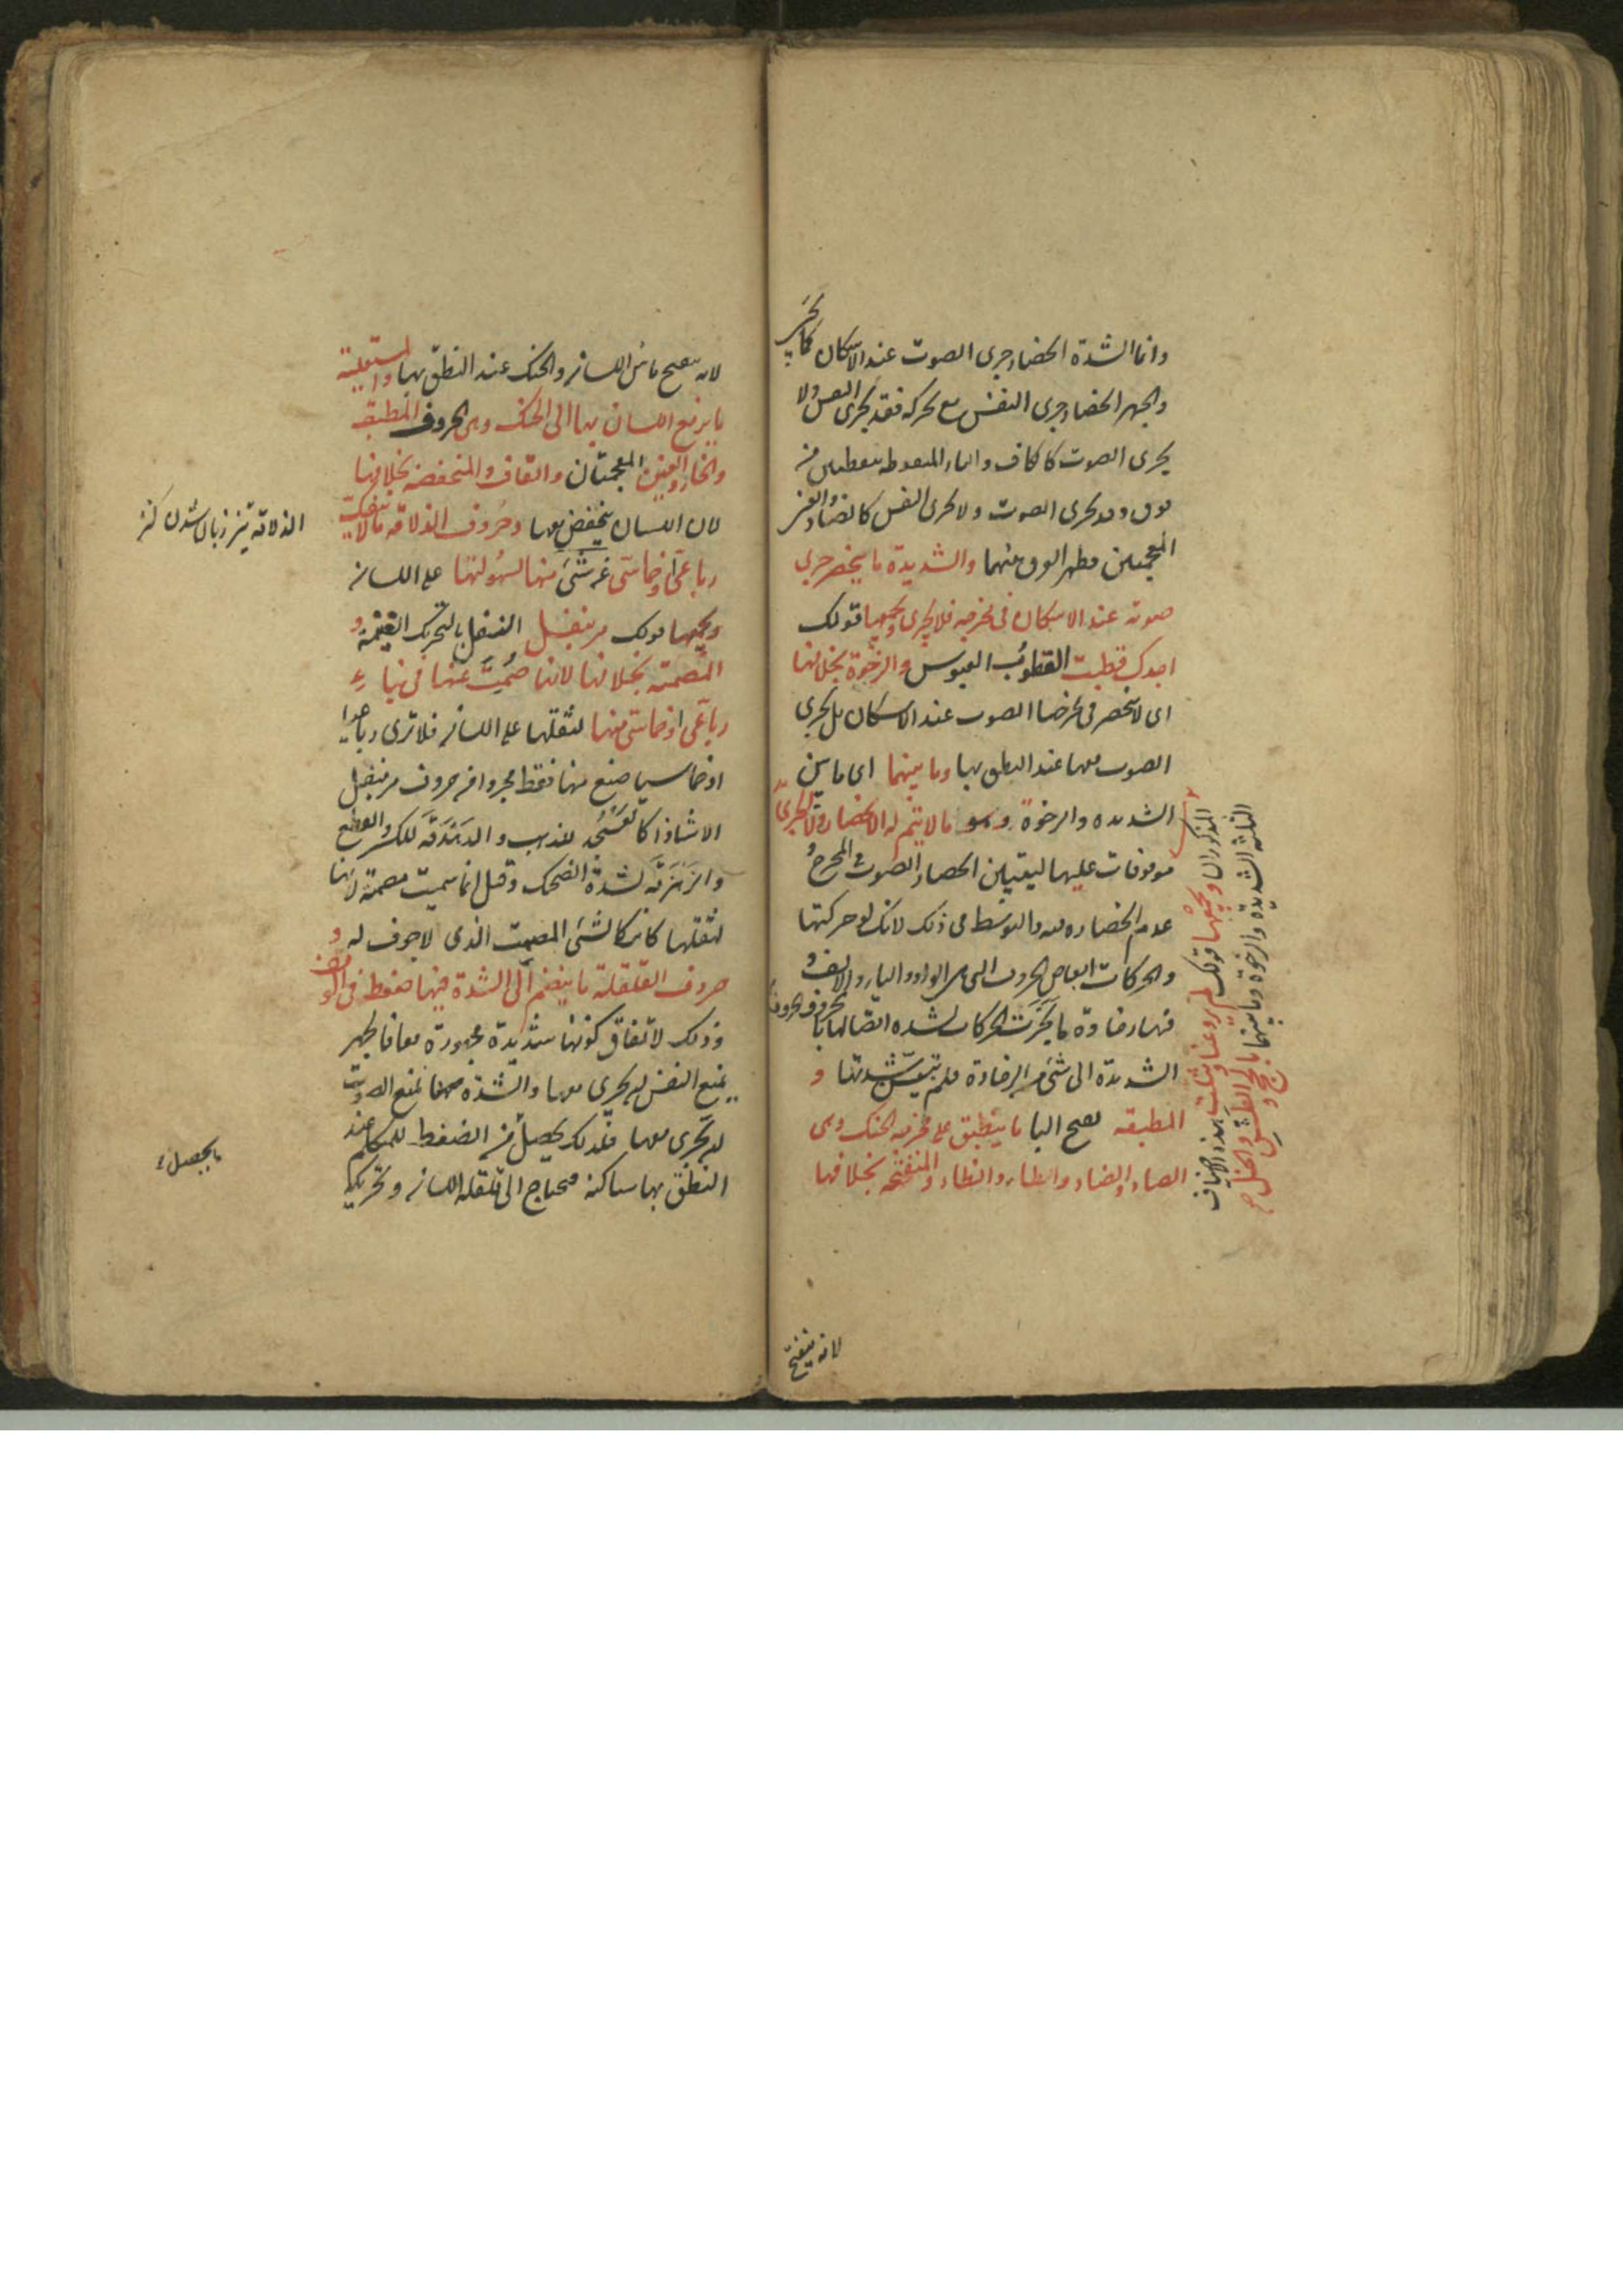 وانما الشدة انحصار جرى الصوت عند الاسكان كما يجئ
والجهر انحصار جرى النفس مع تحركه فقد يجرى النفس ولا
يجرى الصوت كالكاف والتاء المنقوطه بنقطتين من
فوق وقد يجرى الصوت ولا يجرى النفس كالضاد والغين
المعجمتين فظهر الفرق بينهما والشديدة ما ينحصر جرى
صوته عند الاسكان فى مخرجه فلا يجرى ويجمعها قولك
اجدك قطبت القطوب العبوس والرخوة بخلافها
اى لا ينحصر فى مخرجها الصوت عند الاسكان بل يجرى
الصوت معها عند النطق بها وما بينهما اى ما بين
الشديده والرخوة وهو ما لا يتم له الانحصار ولا الجرى
موقوفات عليها ليتبين انحصار الصوت فى المخرج و
عدم انحصاره فيه والتوسط فى ذلك لانك لو حركتها
والحركات ابعاض الحروف التى هى الواو والياء والالف و
فيها رخاوة ما لجرت الحركات لشده اتصالها بالحروف الحروف
الشديدة الى شئ من الرخاوة فلم يتبين شدتها و
المطبقه بفتح البا ما ينطبق على مخرجه الحنك وهى
الصاد والضاد والطاء والظاء والمنفتحه بخلافها
المذكوران ويجمعها قولك لم يروعنا
الثلثة الشديدة والرخوة وما بينهما
لانه ينفتح
لانه ينفتح ما بين اللسان والحنك عند النطق بها والمستعلية
ما يرتفع اللسان بها الى الحنك وهى الحروف المطبقه
والخاء والغين المعجمتان والقاف والمنخفضه بخلافها
لان اللسان ينخفض بها وحروف الذلاقه ما لا ينفك
رباعى او خماسى عن شئ منها لسهولتها على اللسان
ويجمعها قولك مر بنفل النفل بالتحريك الغنيمة و
المصمته بخلافها لانها صُمِتَ عنها فى بناء
رباعى او خماسى منها لثقلها على اللسان فلا ترى رباعيا
او خماسيا صنع منها فقط مجردا من حروف مر بنفل
الا شاذا كالعسجد للذهب والدهدقه للكسر والقطع
والزهزقه لشدة الضحك وقيل انما سميت مصمتة لانها
لثقلها كانه كالشئ المصمت الذى لا جوف له و
حروف القلقلة ما ينضم الى الشدة فيها ضغط فى الوقف
وذلك لاتفاق كونها شديدة مجهورة معا فالجهر
يمنع النفس ان يجرى معها والشدة معها تمنع الصوت
ان يجرى معها فلذلك يحصل من الضغط للمتكلم عند
النطق بها ساكنه فيحتاج الى قلقله اللسان وتحريكها
الذلاقه تيز زبان شدن كنز
ما يحصل